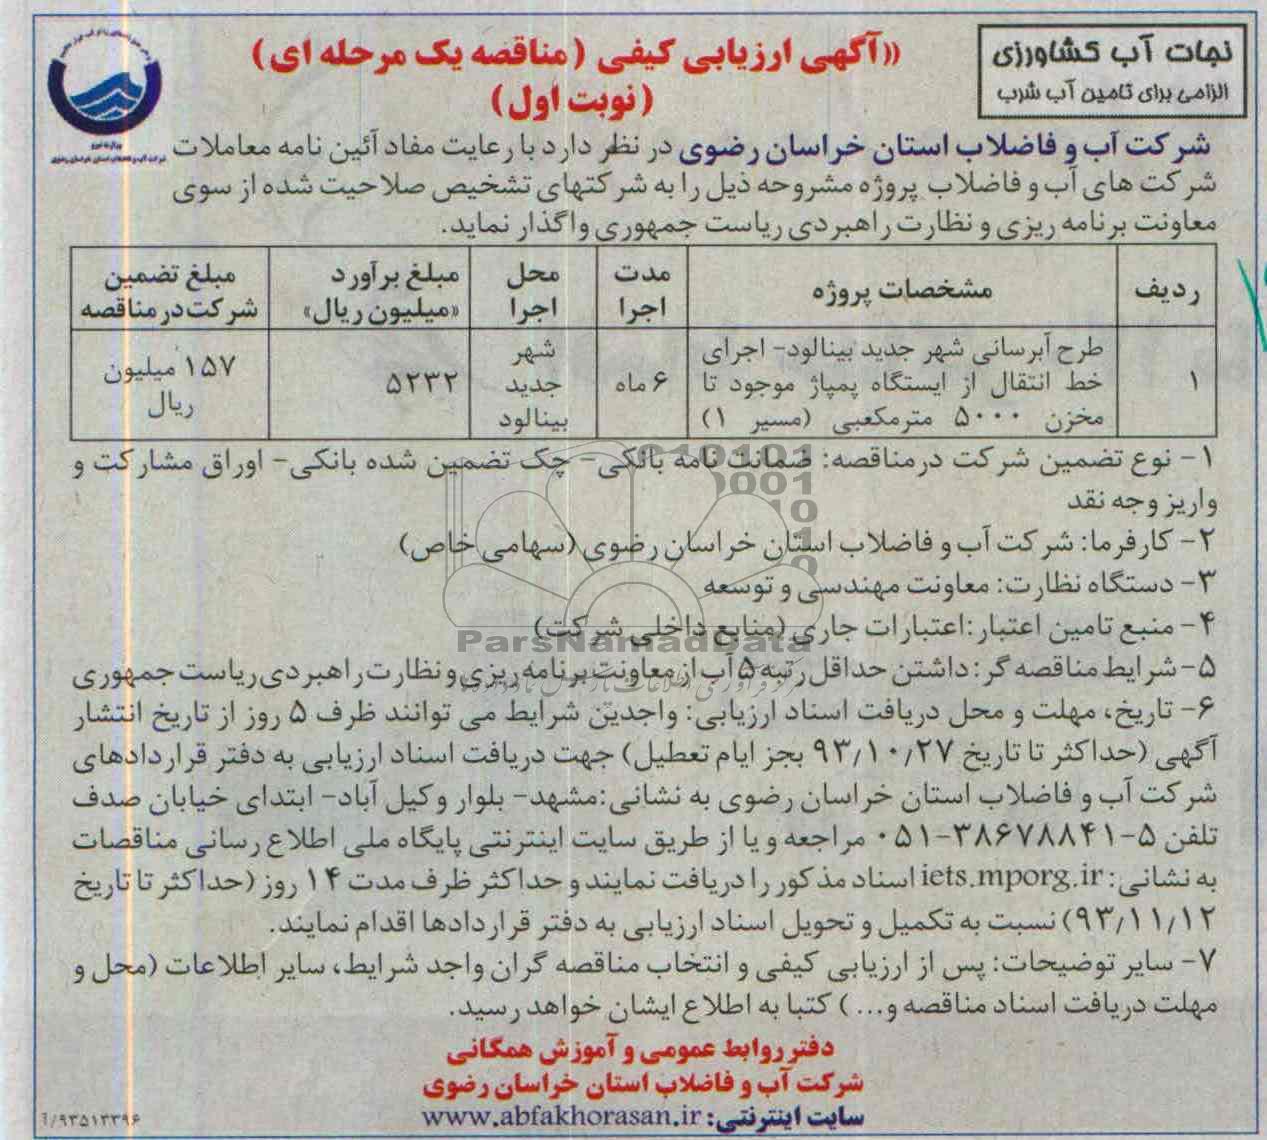 نجات آب کشاورزی
الزامی برای تامین آب شرب
«آگهی ارزیابی کیفی (مناقصه یک مرحله ای)
(نوبت اول)
شرکت آب و فاضلاب استان خراسان رضوی در نظر دارد با رعایت مفاد آئین نامه معاملات
شرکت های آب و فاضلاب پروژه مشروحه ذیل را به شرکتهای تشخیص صلاحیت شده از سوی
معاونت برنامه ریزی و نظارت راهبردی ریاست جمهوری واگذار نماید.
ردیف | مشخصات پروژه | مدت اجرا | محل اجرا | مبلغ برآورد «میلیون ریال» | مبلغ تضمین شرکت در مناقصه
۱ | طرح آبرسانی شهر جدید بینالود- اجرای خط انتقال از ایستگاه پمپاژ موجود تا مخزن ۵۰۰۰ مترمکعبی (مسیر ۱) | ۶ ماه | شهر جدید بینالود | ۵۲۳۲ | ۱۵۷ میلیون ریال
۱- نوع تضمین شرکت درمناقصه: ضمانت نامه بانکی- چک تضمین شده بانکی- اوراق مشارکت و
واریز وجه نقد
۲- کارفرما: شرکت آب و فاضلاب استان خراسان رضوی (سهامی خاص)
۳- دستگاه نظارت: معاونت مهندسی و توسعه
۴- منبع تامین اعتبار: اعتبارات جاری (منابع داخلی شرکت)
ParsNamadData
۵- شرایط مناقصه گر: داشتن حداقل رتبه ۵ آب از معاونت برنامه ریزی و نظارت راهبردی ریاست جمهوری
۶- تاریخ، مهلت و محل دریافت اسناد ارزیابی: واجدین شرایط می توانند ظرف ۵ روز از تاریخ انتشار
آگهی (حداکثر تا تاریخ ۹۳/۱۰/۲۷ بجز ایام تعطیل) جهت دریافت اسناد ارزیابی به دفتر قراردادهای
شرکت آب و فاضلاب استان خراسان رضوی به نشانی: مشهد- بلوار وکیل آباد- ابتدای خیابان صدف
تلفن ۵-۳۸۶۷۸۸۴۱-۰۵۱ مراجعه و یا از طریق سایت اینترنتی پایگاه ملی اطلاع رسانی مناقصات
به نشانی: iets.mporg.ir اسناد مذکور را دریافت نمایند و حداکثر ظرف مدت ۱۴ روز (حداکثر تا تاریخ
۹۳/۱۱/۱۲) نسبت به تکمیل و تحویل اسناد ارزیابی به دفتر قراردادها اقدام نمایند.
۷- سایر توضیحات: پس از ارزیابی کیفی و انتخاب مناقصه گران واجد شرایط، سایر اطلاعات (محل و
مهلت دریافت اسناد مناقصه و...) کتبا به اطلاع ایشان خواهد رسید.
دفتر روابط عمومی و آموزش همگانی
شرکت آب و فاضلاب استان خراسان رضوی
سایت اینترنتی: www.abfakhorasan.ir
۹۳۵۱۳۳۹۶/آ